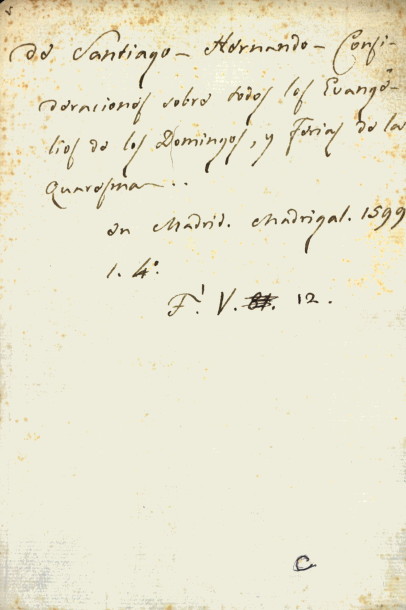 de Santiago - Hernando - Consi-
deraciones sobre todos los Evange-
lios de los Domingos, y Ferias de la
Quaresma..
en Madrid. Madrigal. 1599
1. 4º.
F.' V. 12.
C